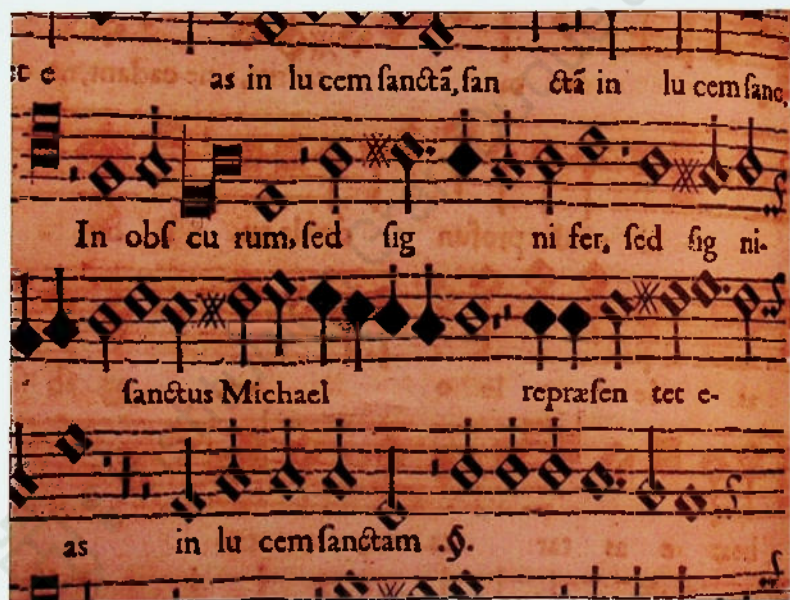 et e as in lu cem ſanctã, ſan ctã in lu cem ſanc,
In obſ cu rum, ſed ſig ni fer, ſed ſig ni-
ſanctus Michael repræſen tet e-
as in lu cem ſanctam .§.